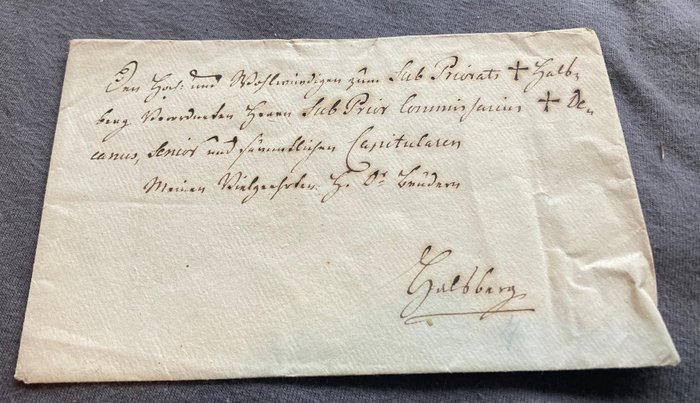 Den Hoch und Wohlwürdigen zum Sub Priorats + Hals⸗
berg Verordneten Herrn Sub Prior Commissarius + De⸗
canus, Senior und sämmtlichen Capitularen
Meinen Vielgeehrten H. Brüdern
Halsberg